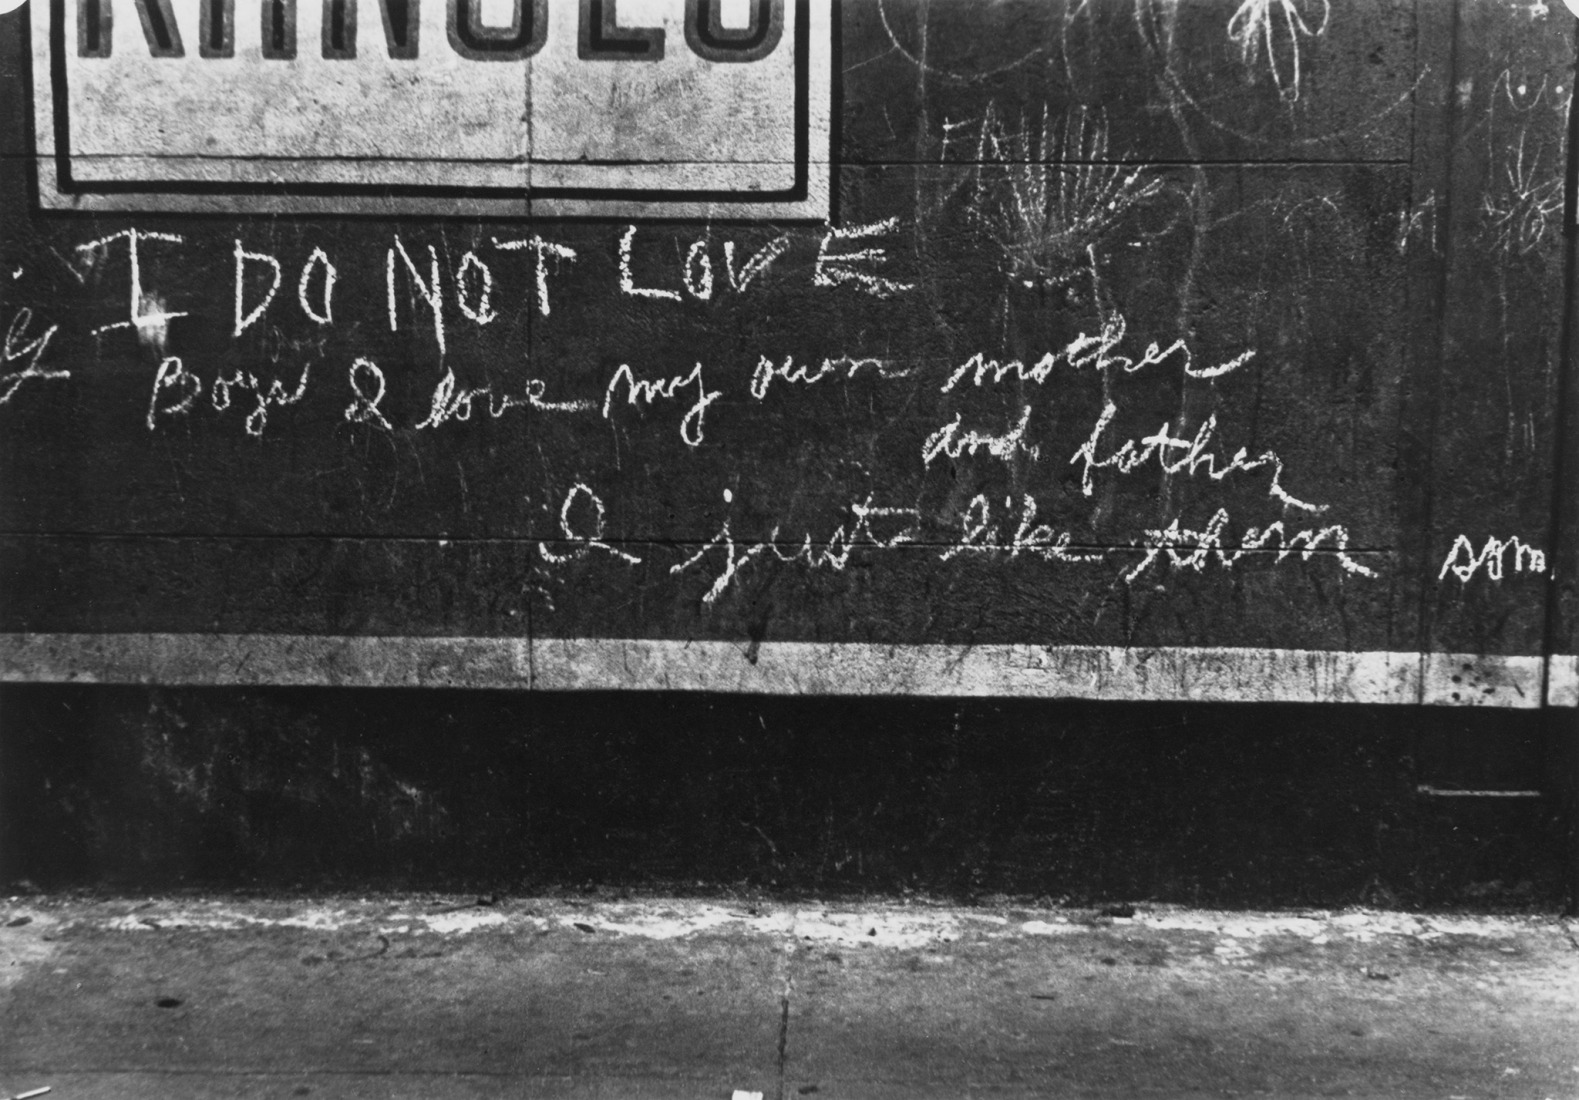 I DO NOT LOVE
Boys I love my own mother
and father
I just like them som